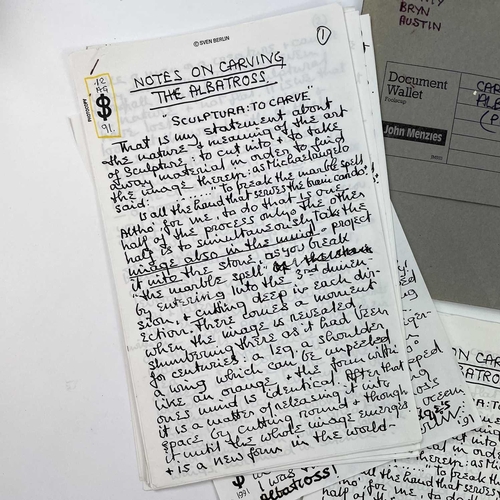 © SVEN BERLIN
1
12
AG
$
91.
NOTES ON CARVING
THE ALBATROSS.
"SCULPTURA: TO CARVE"
That is my statement about
the nature & meaning of the art
of Sculpture: to cut into & to take
away material in order to find
the image therein: as Michaelangelo
said: "......" to break the marble spell
is all the hand that serves the brain can do."
Altho' for me, to do that is one
half of the process only: the other
half is to simultaneously take the
image also in the mind & project
it into the stone, as you break
"the marble spell"
by entering into the 3rd dimen-
sion, & cutting deep in each dir-
ection. There comes a moment
when the image is revealed
slumbering there as it had been
for centuries: a leg, a shoulder
a wing which can be unpeeled
like an orange, & the form within
ones mind is identical. After that
it is a matter of releasing it into
space by cutting round & through
it until the whole image emerges
& is a new form in the world-
BRYN
AUSTIN
Document
Wallet
Foolscap
John Menzies
CAR
AL
(P
$
1991
I was
ALBATROSS!